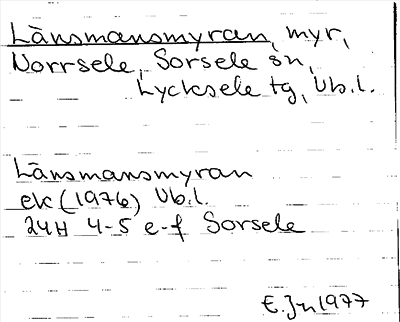 Länsmansmyran, myr,
Norrsele, Sorsele sn,
Lycksele tg, Vb.l.
Länsmansmyran
ek (1976) Vb.l.
24H 4-5 e-f Sorsele
E. Jn 1977